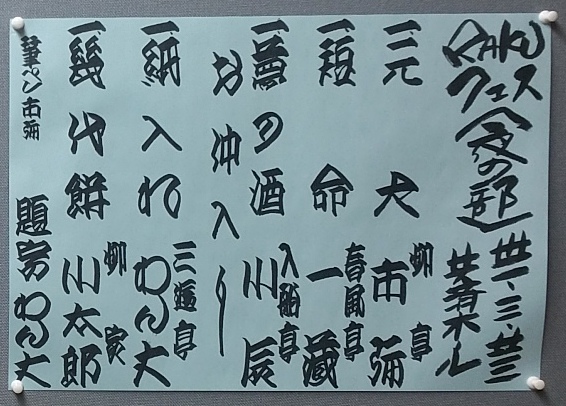 RAKUフェス(夜の部)
卅一・三・廿三
ホール
一、元犬 柳亭市弥
一、短命 春風亭一蔵
一、夢の酒 入船亭小辰
お仲入り
一、紙入れ 三遊亭わん丈
一、幾代餅 柳家小太郎
筆ペン市弥 題字わん丈